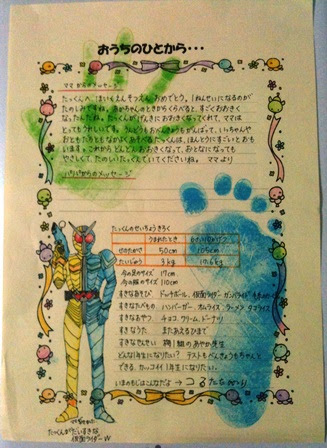 おうちのひとから・・・
ママからのメッセージ
たっくんへ ほいくえんそつえん おめでとう。1ねんせいになるのが
たのしみですね。赤ちゃんのときからくらべると、すごくおおきく
なったね。たっくんがげんきにおおきくなってくれて、ママは
とってもうれいです。
ほんとうにすごいとおも
います。これからどんどんおおきくなって、おとなになっても
やさしくて、たのしいたっくんでいてくださいね。ママより
パパからのメッセージ
たっくんのせいちょうきろく
うまれたとき
せのたかさ 50cm 105cm
たいじゅう 3kg 17.6kg
今の足のサイズ 17cm
今の服のサイズ 110cm
すきなあそび ドッヂボール、仮面ライダー ガンバライド
すきなたべもの ハンバーガー、オムライス、ラーメン、タコライス
すきなおやつ チョコ、クリーム、ドーナツ
すきなうた またあえるひまで
すきなせんせい 組のあやか先生
どんな1年生になりたい? テストもべんきょうもちゃんと
できる、カッコイイ1年生になりたい。
いまのもじはこんなだよ→
たっくんがだいすきな
仮面ライダーW